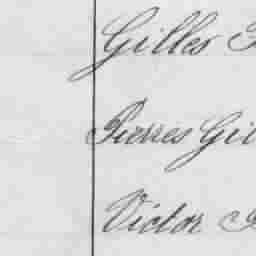 Gilles
Pierres Gil
Victor